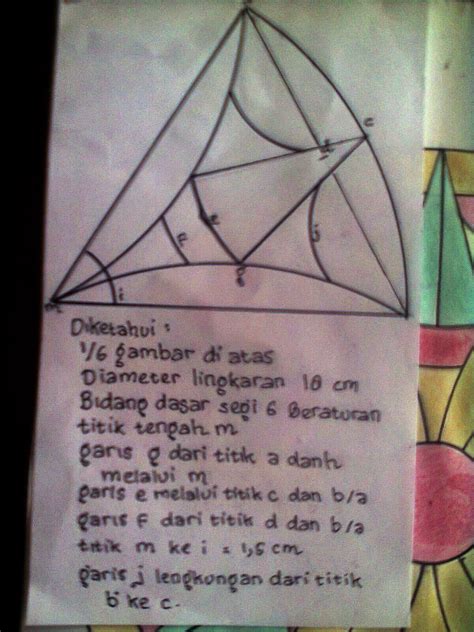 c
d
e
F
j
g
i
m
Diketahui :
1/6 gambar di atas
Diameter lingkaran 10 cm
Bidang dasar segi 6 Beraturan
titik tengah m
garis g dari titik a danh
melalui m
garis e melalui titik c dan b/a
garis F dari titik d dan b/a
titik m ke i = 1,5 cm
garis j lengkungan dari titik
b ke c.